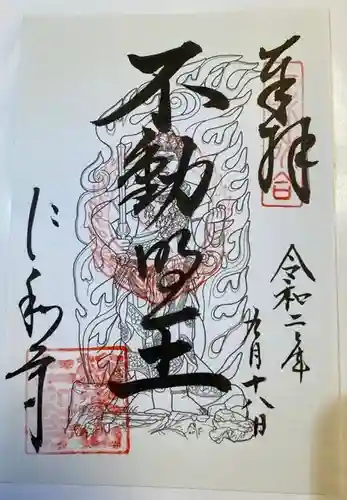 奉拝
令和二年
九月十八日
不動明王
仁和寺